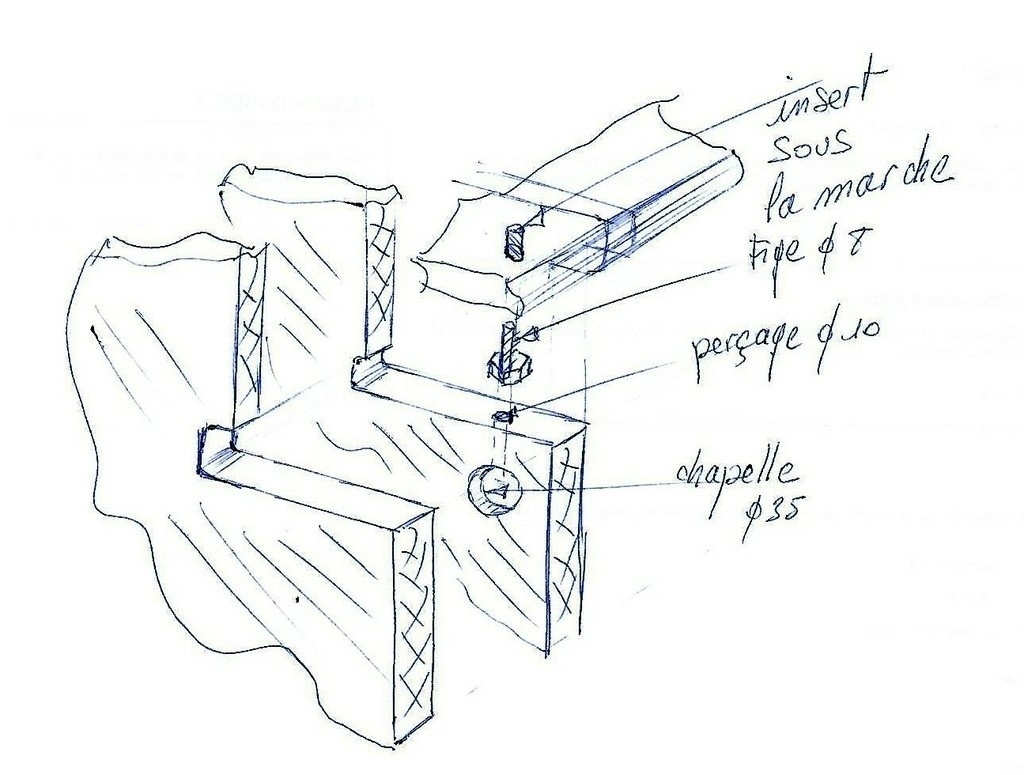 insert
sous
la marche
tige ϕ 8
perçage ϕ 10
chapelle
ϕ35